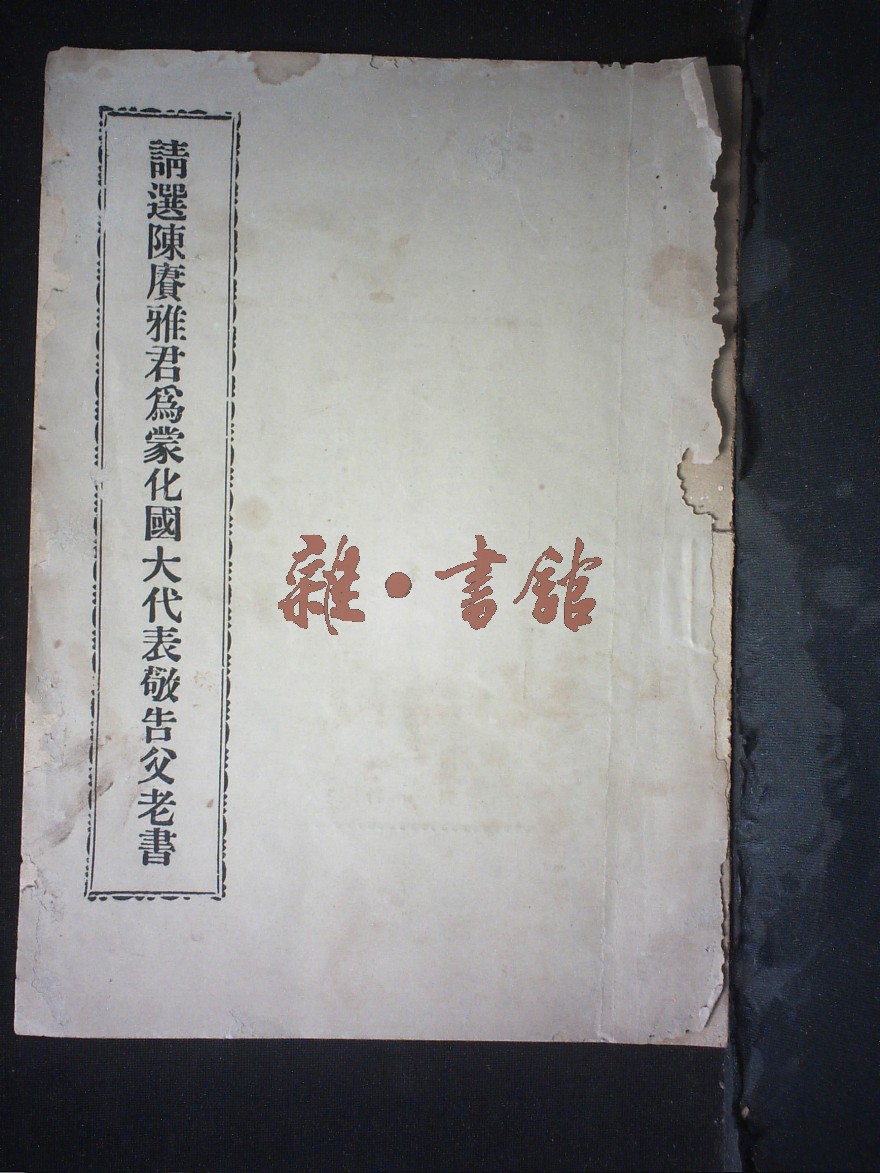 請選陳賡雅君爲蒙化國大代表敬告父老書
雜·書館